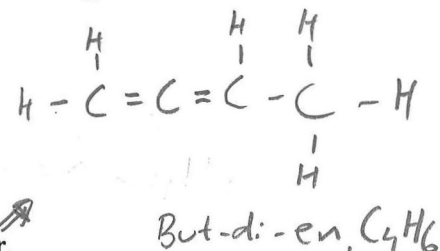 H H H
H - C = C = C - C - H
H
r
But-di-en, C4H6